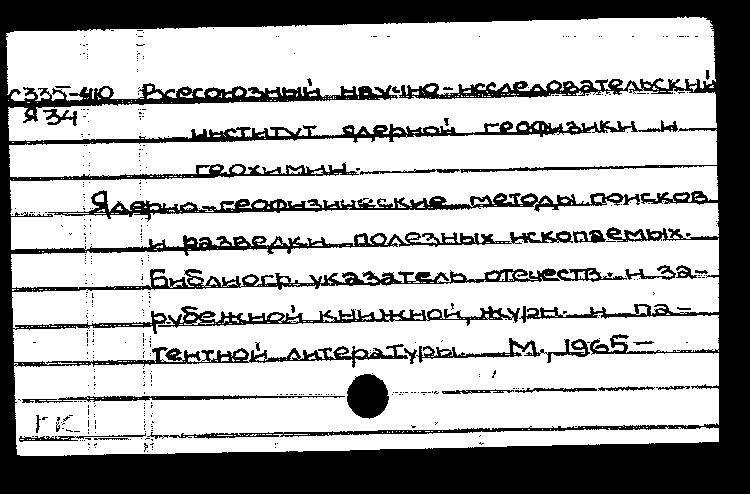 С335-410 Всесоюзный научно-исследовательский
Я34
институт ядерной геофизики и
геохимии.
Ядерно-геофизические методы поисков
и разведки полезных ископаемых.
Библиогр. указатель отечеств. и за-
рубежной книжной, журн. и па-
тентной литературы М., 1965-
ГК